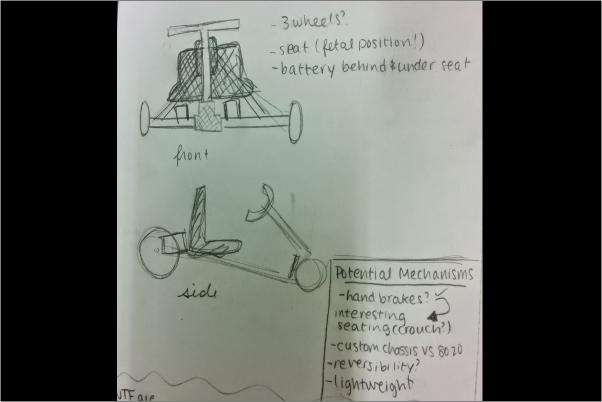 - 3 wheels?
- seat (fetal position!)
- battery behind & under seat
front
side
Potential Mechanisms
- hand brakes?
interesting
seating (crouch?)
- custom chassis vs 8020
- reversibility?
- lightweight